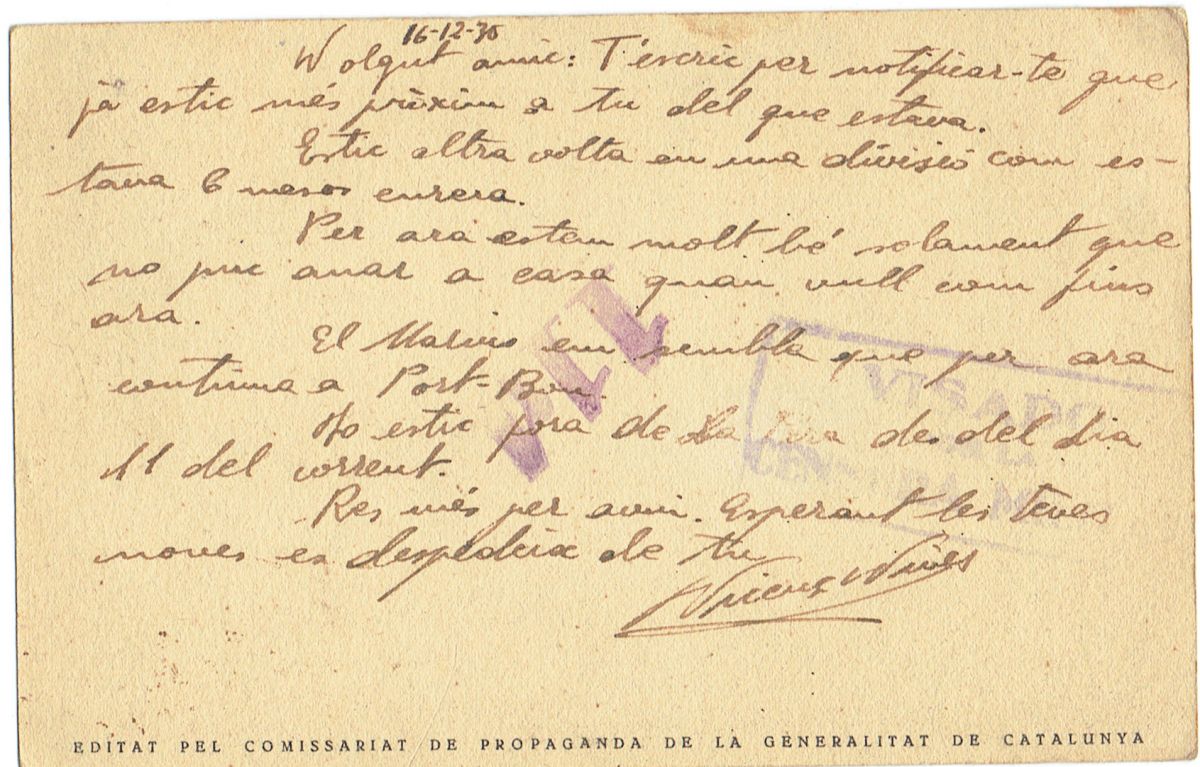 16-12-38
Volgut amic: T'escric per notificar-te que
ja estic més pròxim a tu del que estava.
Estic altra volta en una divisió com es-
tava 6 mesos enrera.
Per ara estem molt bé solament que
no puc anar a casa quan vull com fins
ara.
El em sembla que per ara
continua a Port-Bou.
Jo estic fora de la des del dia
11 del corrent.
Res més per avui. Esperant les teves
noves es despedeix de tu
Vicens Vives
VLL
VISADO
CENSURA
EDITAT PEL COMISSARIAT DE PROPAGANDA DE LA GENERALITAT DE CATALUNYA